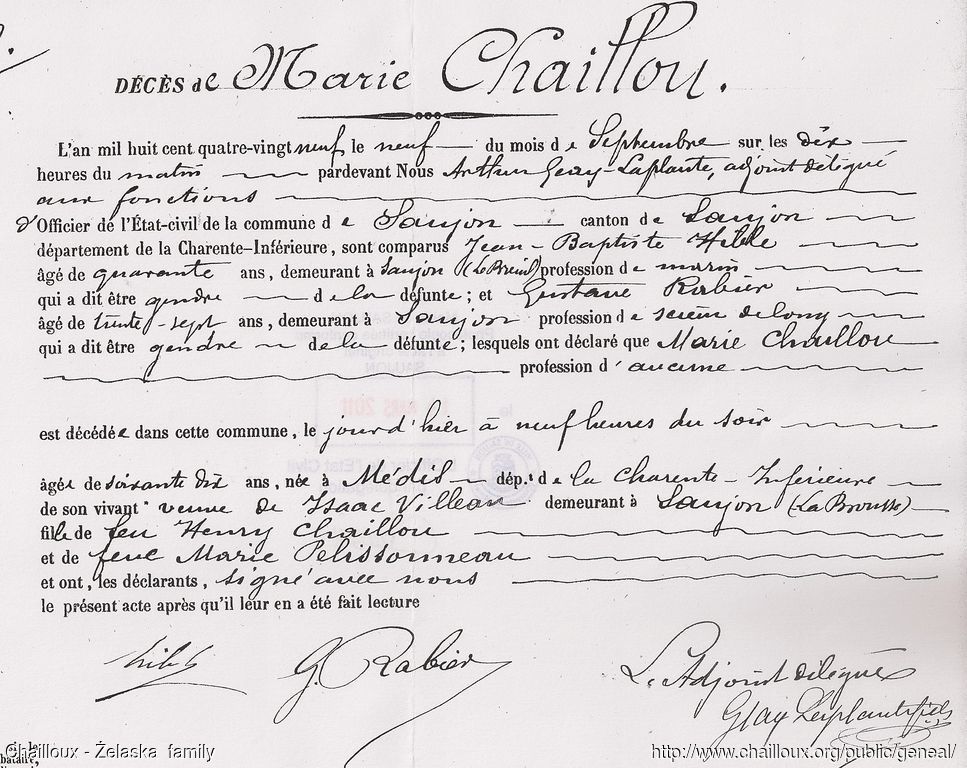 DÉCÈS de Marie Chaillou.
L'an mil huit cent quatre-vingt neuf, le neuf du mois de Septembre sur les dix
heures du matin pardevant Nous Arthur Geay-Laplante, adjoint délégué
aux fonctions
d'Officier de l'État-civil de la commune de Saujon canton de Saujon
département de la Charente-Inférieure, sont comparus Jean-Baptiste
âgé de quarante ans, demeurant à Saujon (Le Breuil) profession de marin
qui a dit être gendre de la défunte; et Gustave Rabier
âgé de trente-sept ans, demeurant à Saujon profession de scieur de long
qui a dit être gendre de la défunte; lesquels ont déclaré que Marie Chaillou
profession d'aucune
est décédée dans cette commune, le jour d'hier à neuf heures du soir
âgée de soixante dix ans, née à Médis dép.t de la Charente-Inférieure
de son vivant veuve de Isaac Villeau demeurant à Saujon (La Brousse)
fille de feu Henry Chaillou
et de feue Marie Pelissonneau
et ont, les déclarants, signé avec nous
le présent acte après qu'il leur en a été fait lecture
G. Rabier
L'Adjoint délégué
Geay Laplante fils
Chailloux - Želaska family
http://www.chailloux.org/public/geneal/